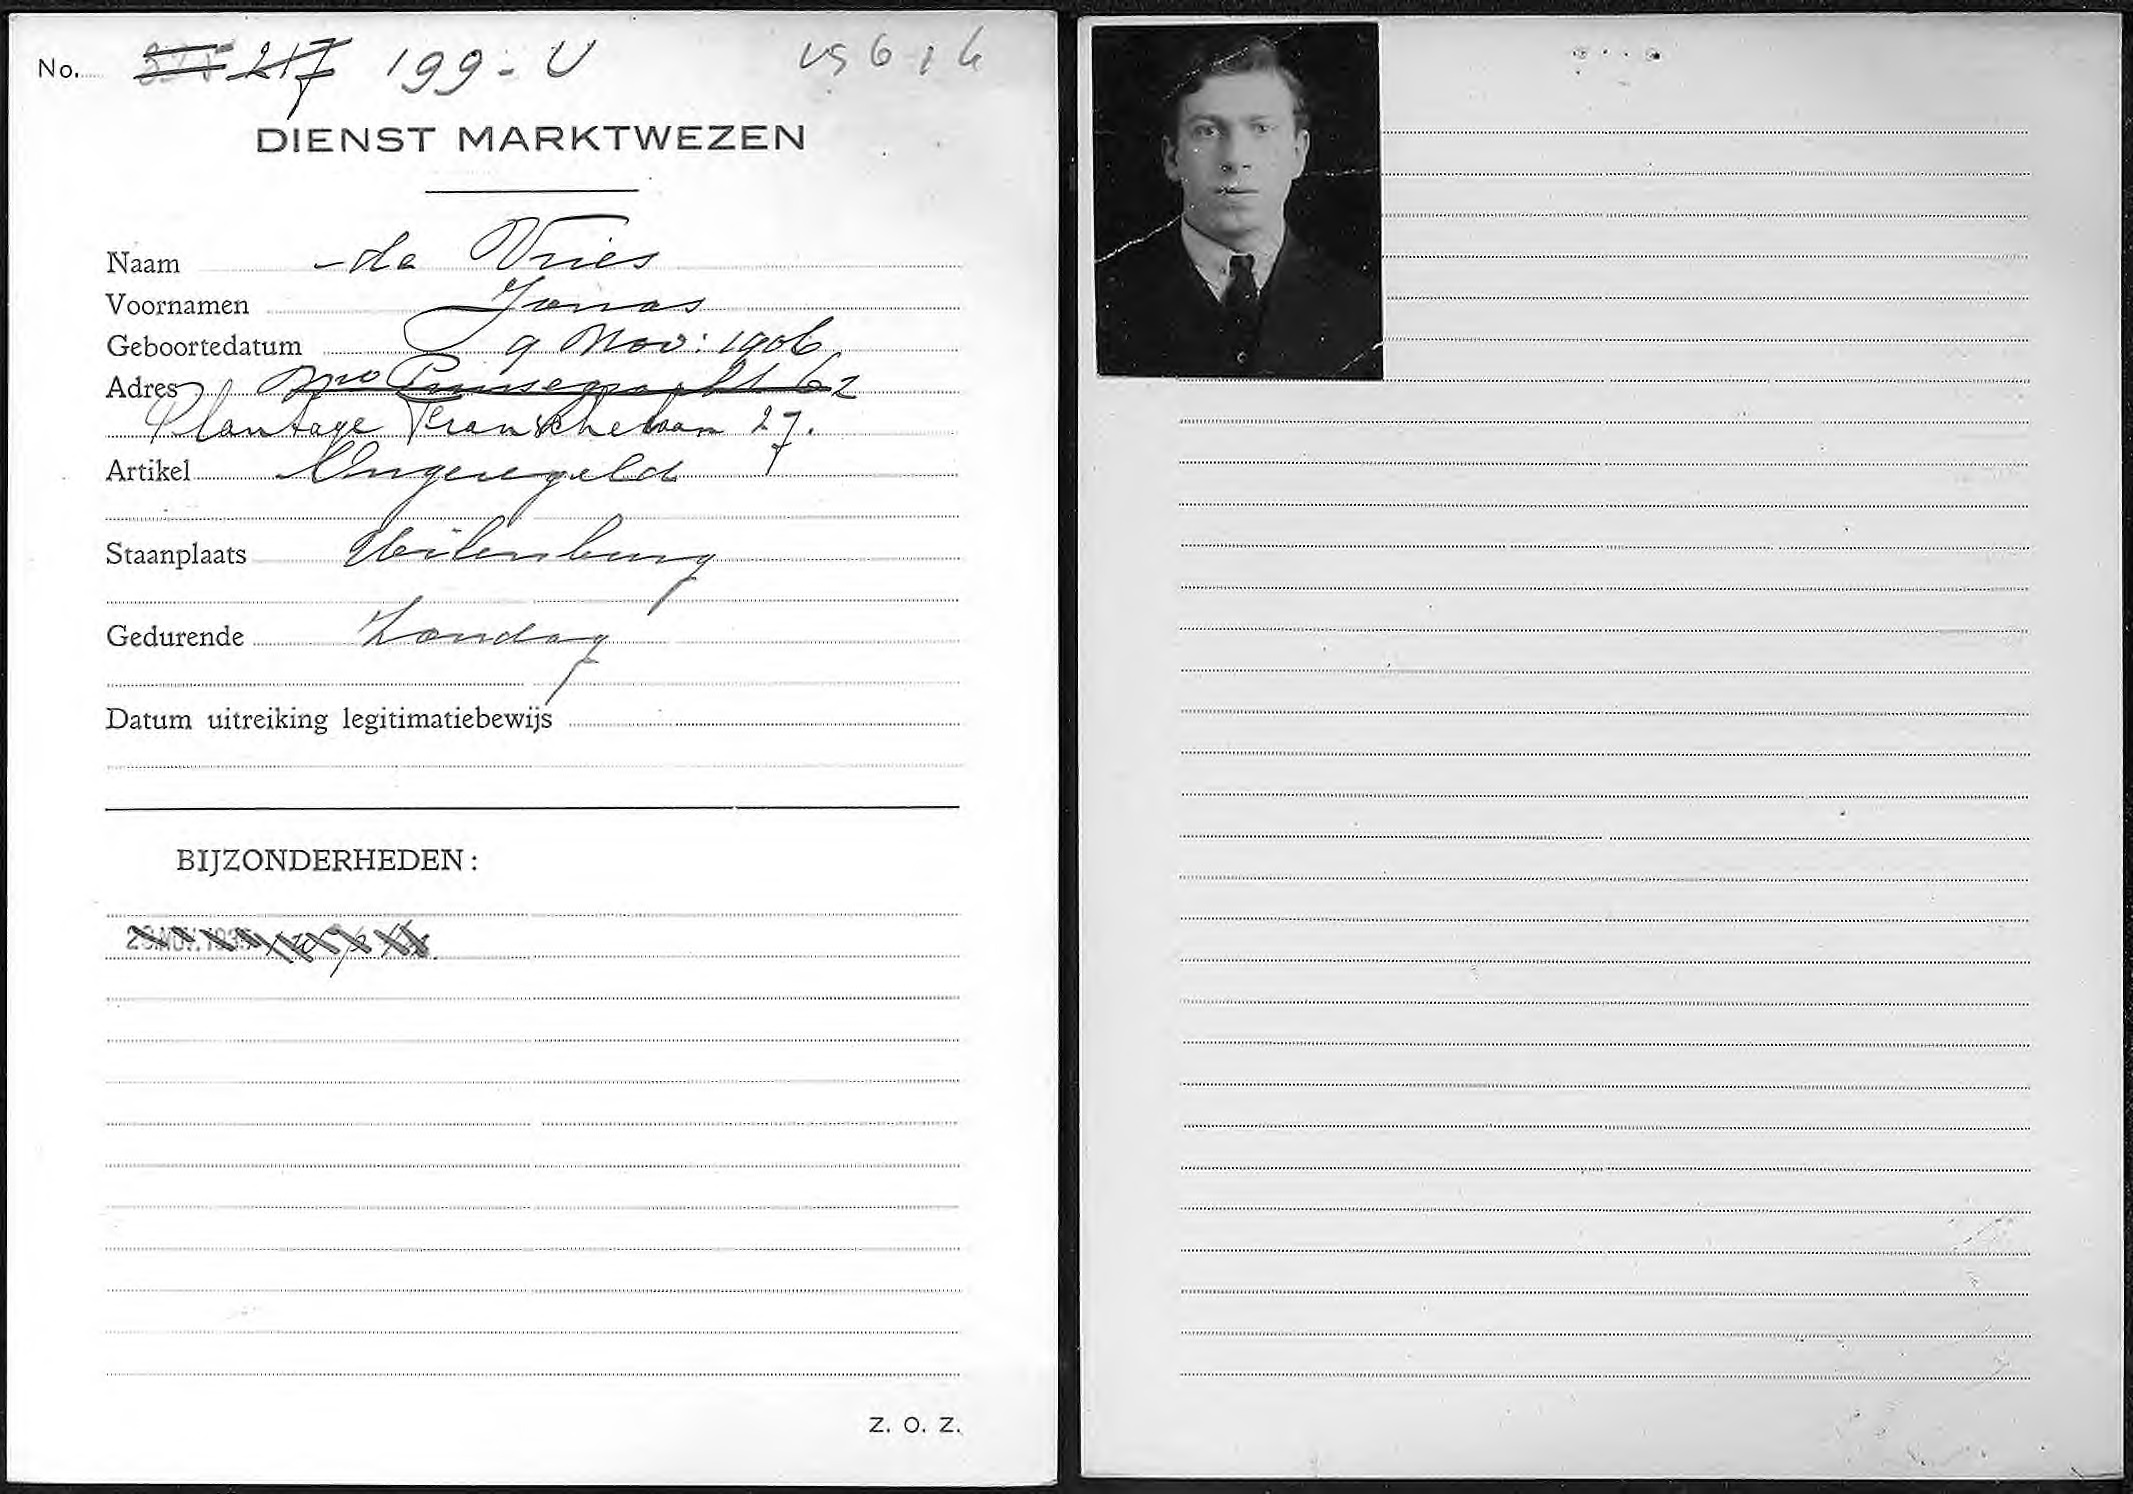 No. 217 199 - U
DIENST MARKTWEZEN
Naam de Vries
Voornamen Jonas
Geboortedatum 9 Nov: 1906
Adres Nwe Prinsegracht 62
Plantage Franschelaan 27.
Artikel Ongeregeld
Staanplaats Uilenburg
Gedurende Zondag
Datum uitreiking legitimatiebewijs
BIJZONDERHEDEN:
Z. O. Z.